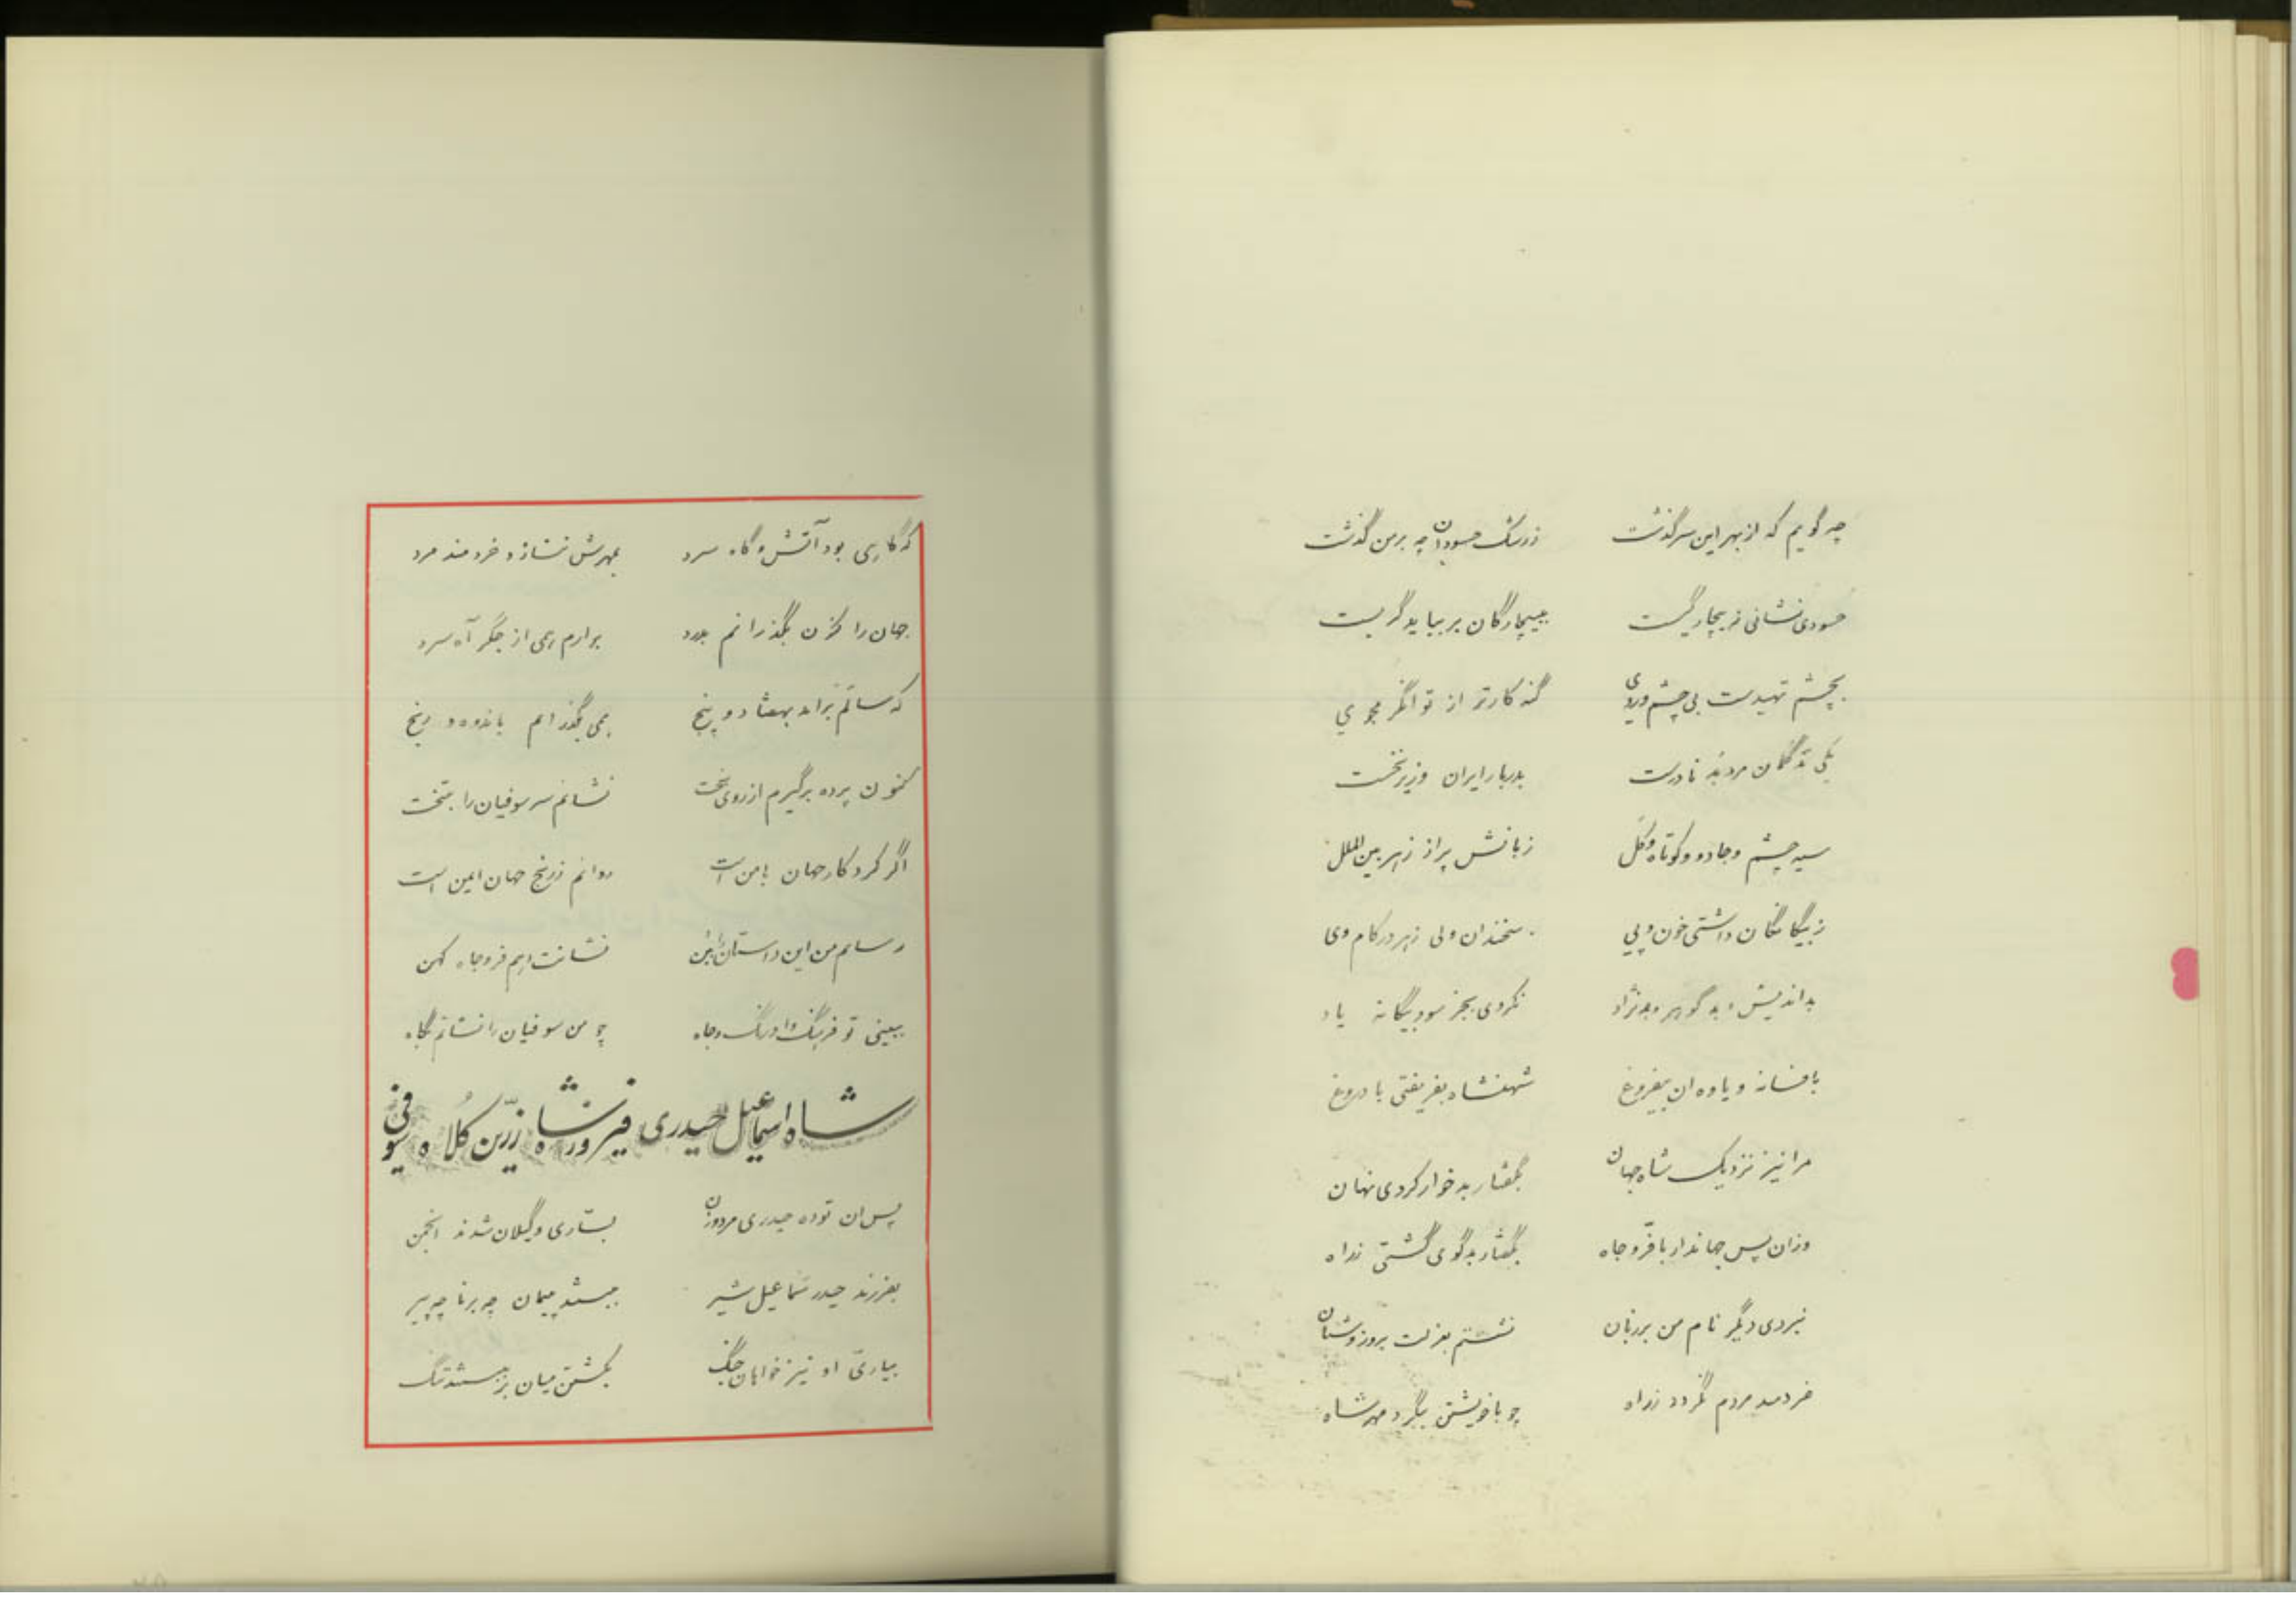 چه گویم که از بهر این سرگذشت زرشک حسودان چه بر من گذشت
حسودی نشانی ز بیچارگیست ببیچارگان بر بباید گریست
بچشم تهیدست بی چشم و روی گنه کارتر از توانگر مجوی
یکی بد گمان مرد نادرست بدربار ایران وزیر نخست
سیه چشم و جادو و کوتاه و کل زبانش پر از زهر بین الملل
ز بیگانگان داشتی خون و پی سخندان ولی زهر در کام وی
بداندیش و بد گوهر و بدنژاد نکردی بجز سود بیگانه یاد
بافسانه و یاوه ان بیفروغ شهنشاه بفریفتی با دروغ
مرا نیز نزدیک شاه جهان بگفتار بد خوار کردی نهان
وزان پس جهاندار با فرّ و جاه بگفتار بدگوی گشتی ز راه
نبردی دیگر نام من بر زبان نشستم بعزلت بروز و شبان
خردمند مردم نگردد ز راه چو با خویشتن بنگرد مهر شاه
که گاهی بود آتش و گاه سرد بمهرش ننازد خردمند مرد
جهان را کزن بگذرانم بدرد برارم همی از جگر آه سرد
که سالم براید بهفتاد و پنج همی بگذرانم باندوه و رنج
کنون پرده برگیرم از روی بخت نشانم سر سوفیان را بتخت
اگر کردکار جهان با من است روانم ز رنج جهان ایمن است
رسانم من این داستان به بن نشانت دهم فر و جاه کهن
ببینی تو فرهنگ و اورنگ و جاه چو من سوفیان را نشانم بگاه
شاه اسماعیل حیدری فیروزشاه زرّین کلاه سوفی
پس ان توده حیدری مرد و زن بساری و گیلان شدند انجمن
بفرزند حیدر سماعیل شیر ببستند پیمان چه برنا چه پیر
بیاری او نیز خواهان جنگ بکشتن میان بر ببستند تنگ